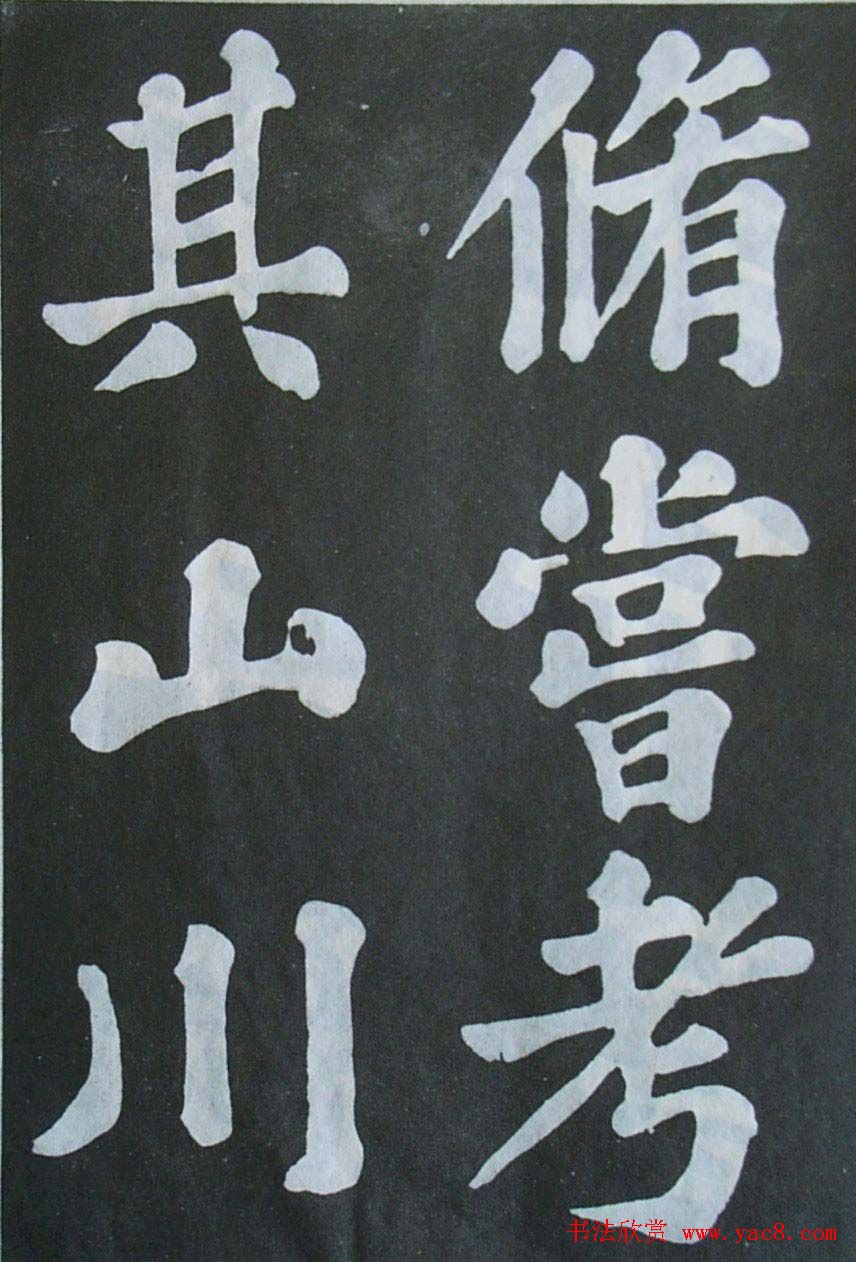 脩甞考
其山川
书法欣赏 www.yac8.com